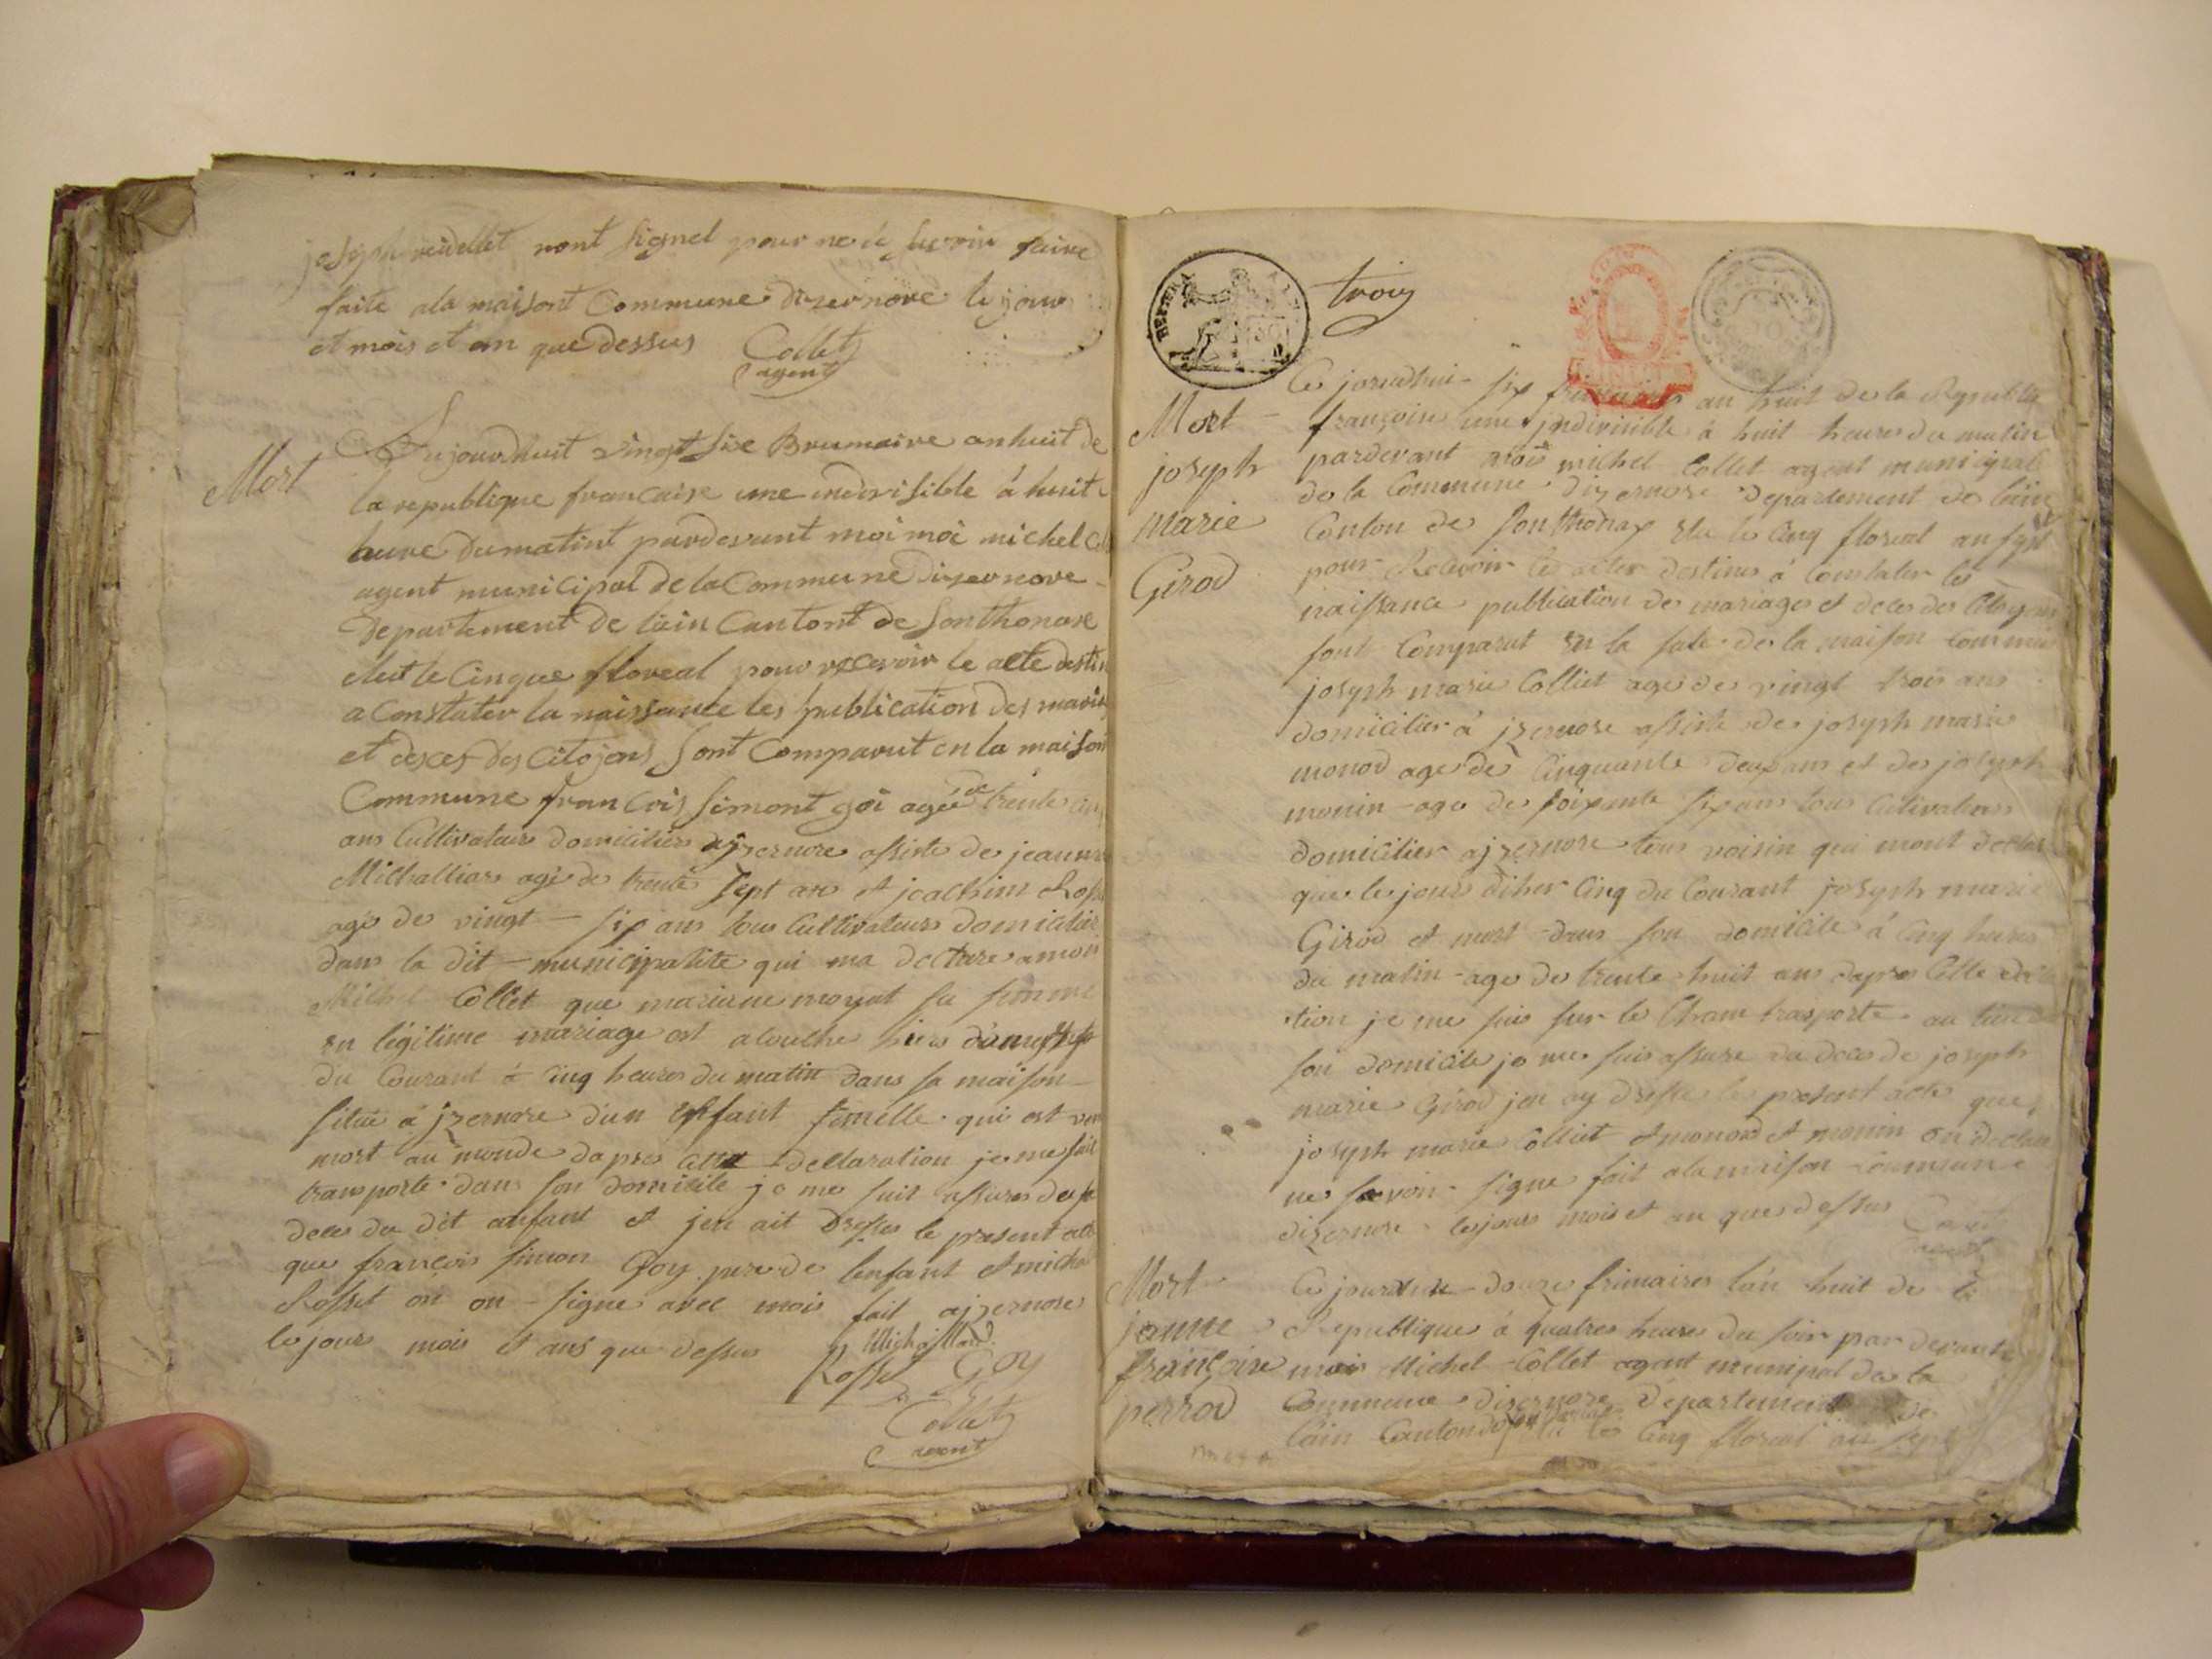 joseph reidellet nont signet pour ne le savoir faire
faite ala maisont Commune dizernore le jour
et mois et an que dessus Collet
agent
Mort
Aujourdhuit vingt sixe Brumaire an huit de
la republique francaise une indivisible à huit
heure dumatint pardevant moi moi michel
agent municipal de la Commune dizernore
Departement de lain Cantont de Sonthonaxe
elut le Cinque floreal pour recevoir le acte destin
a Constater la naissante les publication des maria
et desces des Citojens sont Comparut en la maison
Commune francois simont goi agée de trente
ans Cultivateur domicilier ajzernore assiste de jeanm
Michallias agé de trente sept ans et joachim Rosse
age de vingt - six ans tous Cultivateurs domicilier
dans la dit - municipalite qui ma declare amon
Michel Collet que mariane moyat sa femme
en légitime mariage est acouchee hiere
du Courant à cinq heures du matin dans sa maison
situé á jzernore d'un enfant femelle qui est ven
mort au monde dapres cette declaration je me suit
transporte dans son domicile je me suit assures de
deces du dit anfant et jen ait dresser le present acte
que françois simon Goy pere de lenfant et micha
Rosset on on - signe avec mois fait ajzernore
le jours mois et ans que dessus Michaillard
Rosset Goy
Collet
agent
REPUB
50
trois
Mort
joseph
marie
Girod
Ce jourdhui six frimaire an huit de la Republiq
françoise une jndivisible à huit heures du matin
pardevant moi michel Collet agent municipal
de la Commune dizernore departement de lain
Canton de Sonthonax elu le cinq floreal an sept
pour Recevoir les actes destines à constater les
naissance publication de mariage et deces des Citoyens
sont Comparut en la sale de la maison commun
joseph marie Colliet age de vingt trois ans
domicilier à jzernore assiste de joseph marie
monod age de Cinquante deux ans et de joseph
monin age de soixante six ans tous Cultivateurs
domicilier ajzernore tous voisin qui mont declar
que le jour dihier Cinq du Courant joseph marie
Girod et mort dans son domicile à cinq heures
du matin age de trente huit ans dapres Cette decla
tion je me suis sur le Cham trasporte au lieu de
son domicile je me suis assure du deces de joseph
marie Girod jen ay dresse le present acte que
joseph marie Colliet et monod et monin on declare
ne savoir signe fait ala maison commune
dizernore les jours mois et an que dessus Collet
agent
Mort
jeanne
françoise
perrod
Ce jourdhui douze frimaires lan huit de la
Republique à quatres heures du soir par devante
mois Michel Collet agent munipal de la
Commune dizernore departement de
lain Canton de Sonthonax elu le Cinq floreal an sept